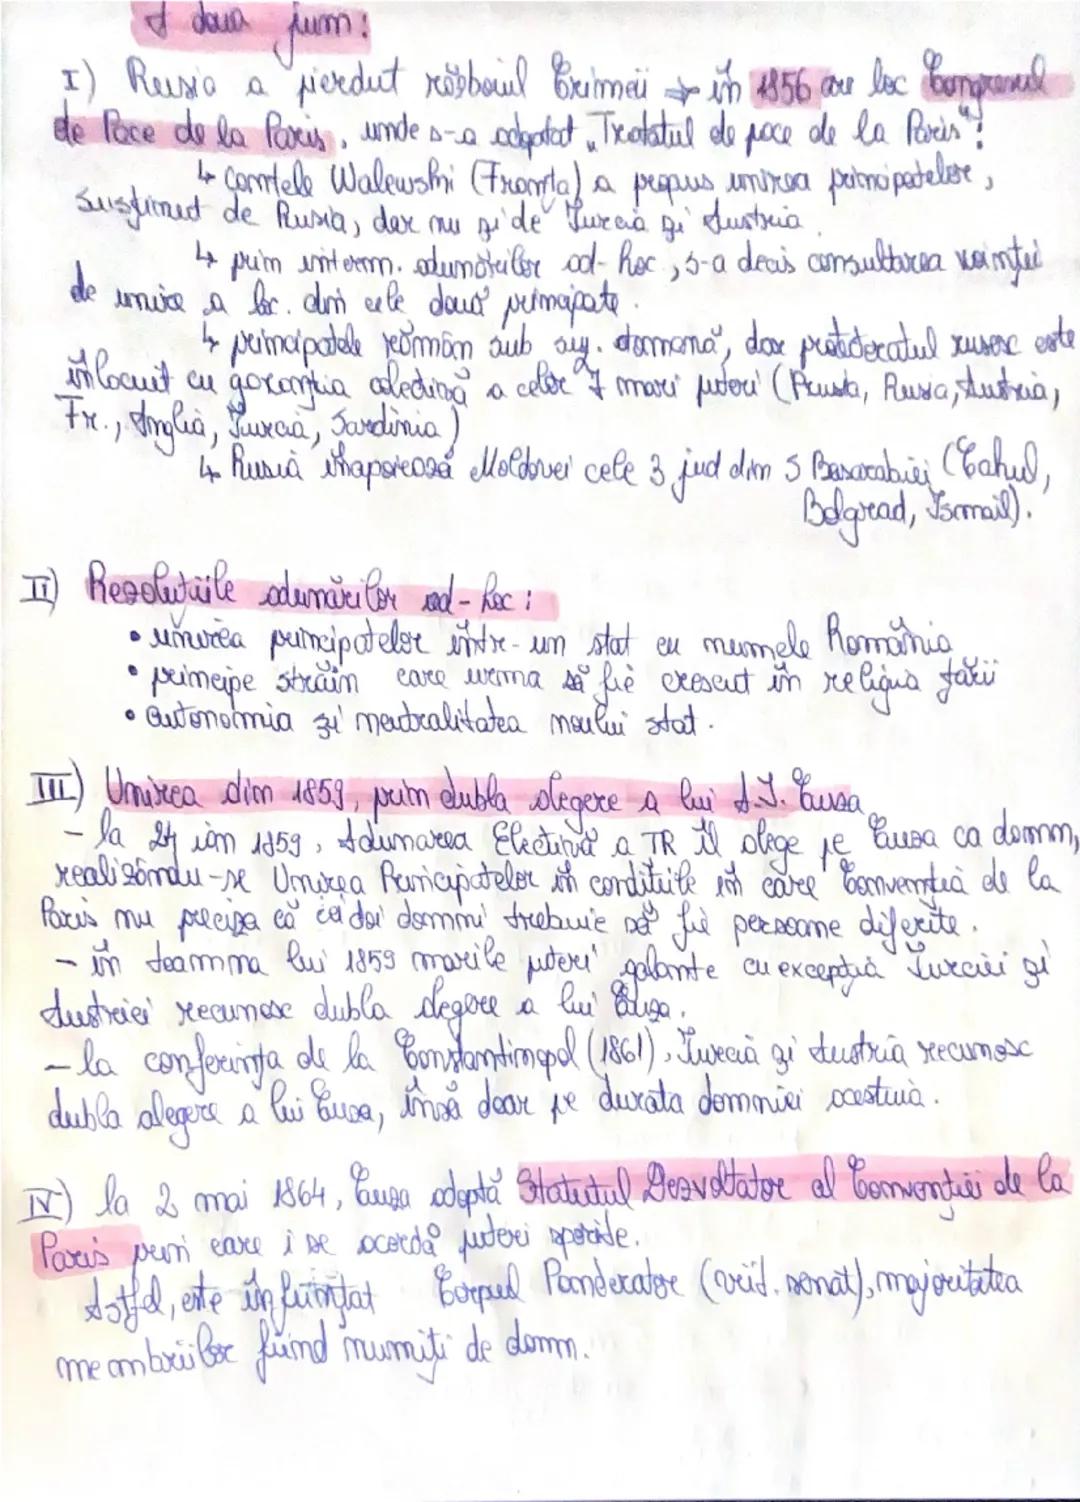 A doua jum:
I) Rusia a pierdut războiul Crimeii → în 1856 are loc Congresul
de Pace de la Paris, unde s-a adoptat „Tratatul de pace de la Paris":
↳ contele Walewski (Franța) a propus unirea principatelor,
susținut de Rusia, dar nu și de Turcia și Austria.
↳ prin interm. adunărilor ad-hoc, s-a decis consultarea voinței
de unire a loc. din cele două principate.
↳ principatele român sub suz. otomană, dar protectoratul rusesc este
înlocuit cu garanția colectivă a celor 7 mari puteri (Prusia, Rusia, Austria,
Fr., Anglia, Turcia, Sardinia)
↳ Rusia înapoiează Moldovei cele 3 jud din S Basarabiei (Cahul,
Bolgrad, Ismail).
II) Rezoluțiile adunărilor ad-hoc:
• unirea principatelor într-un stat cu numele România
• principe străin care urma să fie crescut în religia țării
• autonomia și neutralitatea noului stat.
III) Unirea din 1859, prin dubla alegere a lui A.I. Cuza
- la 24 ian 1859, Adunarea Electivă a TR îl alege pe Cuza ca domn,
realizându-se Unirea Principatelor în condițiile în care Convenția de la
Paris nu preciza că cei doi domni trebuie să fie persoane diferite.
- în toamna lui 1859 marile puteri galante cu excepția Turciei și
Austriei recunosc dubla alegere a lui Cuza.
- la conferința de la Constantinopol (1861), Turcia și Austria recunosc
dubla alegere a lui Cuza, însă doar pe durata domniei acestuia.
IV) la 2 mai 1864, Cuza adoptă Statutul Dezvoltator al Convenției de la
Paris prin care i se acordă puteri sporite.
Astfel, este înființat Corpul Ponderator (viit. senat), majoritatea
membriilor fiind numiți de domn.